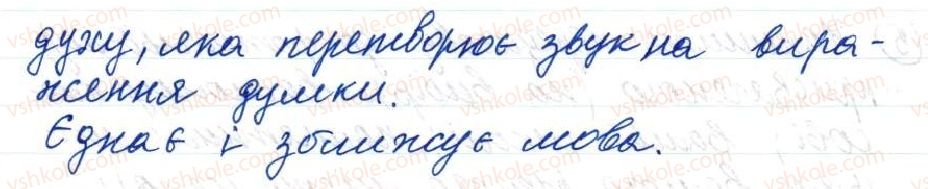 духу, яка перетворює звук на вира-
ження думки.
Єднає і зближує мова.